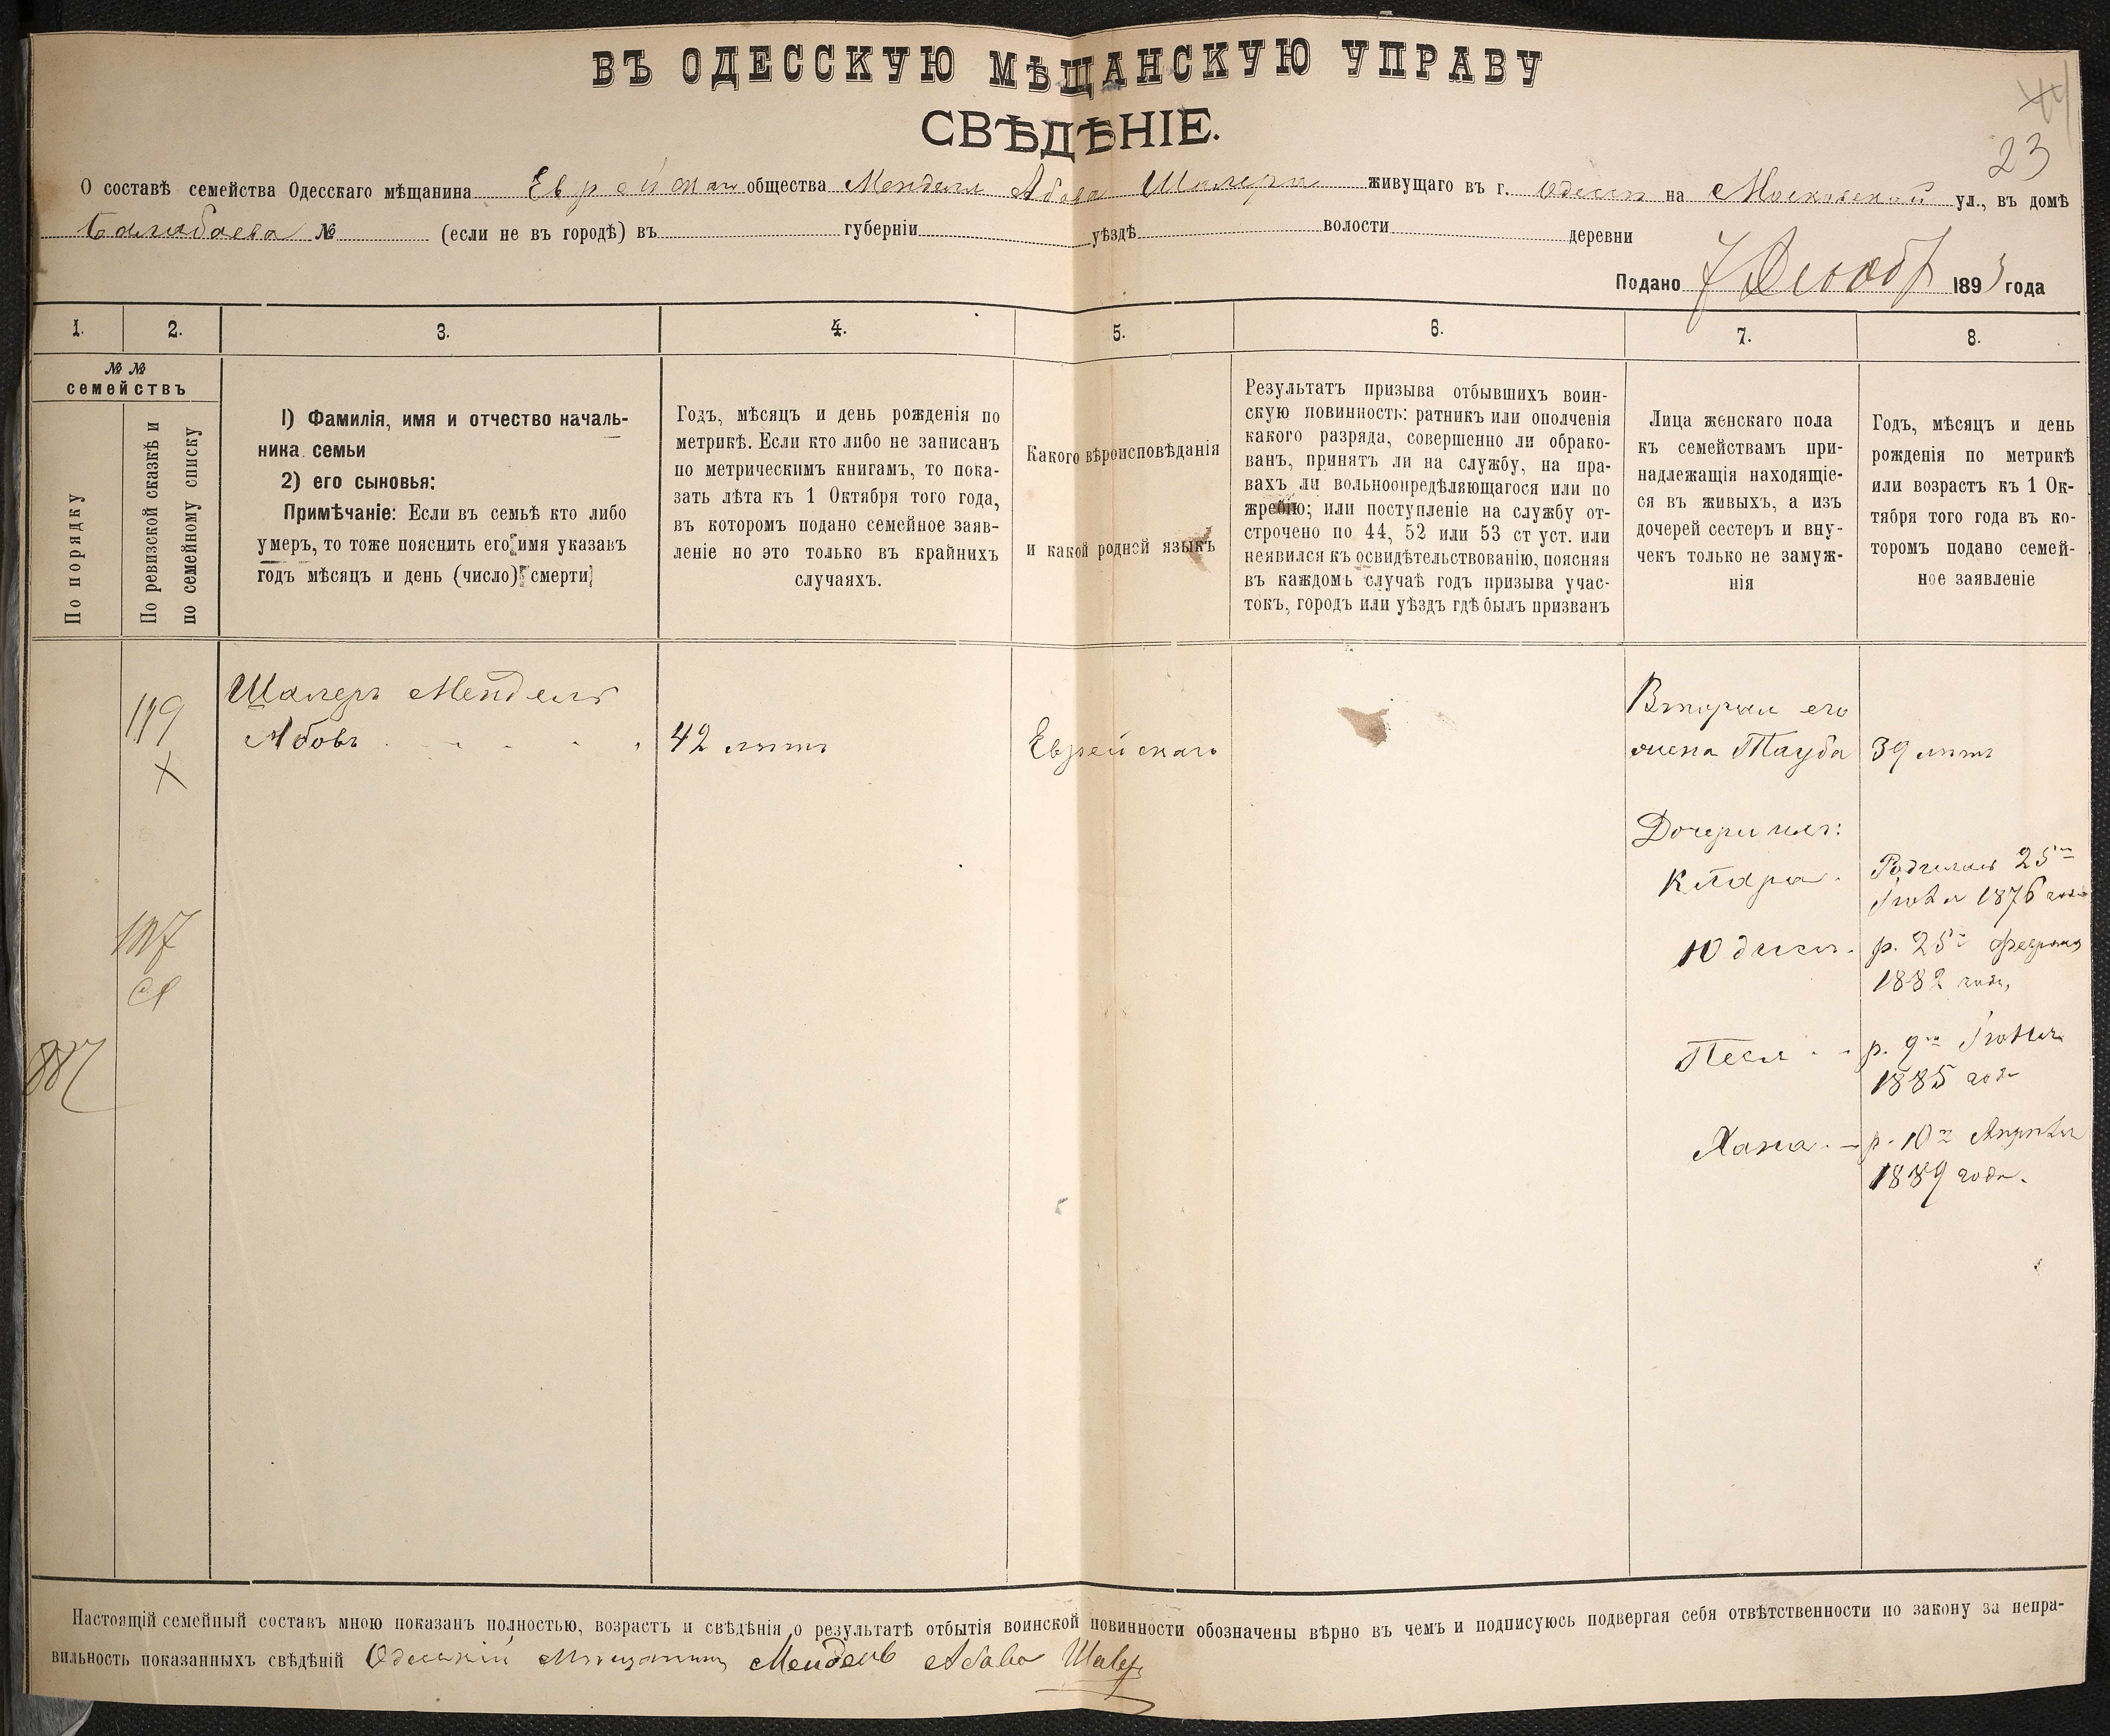 ВЪ ОДЕССКУЮ МѢЩАНСКУЮ УПРАВУ
СВѢДѢНІЕ.
23
О составѣ семейства Одесскаго мѣщанина Еврейскаго общества Менделя Абова Шалера живущаго въ г. Одессѣ на Московской ул., въ домѣ
№ (если не въ городѣ) въ губерніи уѣздѣ волости деревни
Подано 7 Декабр 1893 года
1. 2. 3. 4. 5. 6. 7. 8.
№ №
семействъ
По порядку
По ревизской сказкѣ и
по семейному списку
1) Фамилія, имя и отчество началь-
ника семьи
2) его сыновья:
Примѣчаніе: Если въ семьѣ кто либо
умеръ, то тоже пояснить его имя указавъ
годъ мѣсяцъ и день (число) смерти
Годъ, мѣсяцъ и день рожденія по
метрикѣ. Если кто либо не записанъ
по метрическимъ книгамъ, то пока-
зать лѣта къ 1 Октября того года,
въ которомъ подано семейное заяв-
леніе но это только въ крайнихъ
случаяхъ.
Какого вѣроисповѣданія
и какой родной языкъ
Результатъ призыва отбывшихъ воин-
скую повинность: ратникъ или ополченія
какого разряда, совершенно ли обрако-
ванъ, принятъ ли на службу, на пра-
вахъ ли вольноопредѣляющагося или по
жребію; или поступленіе на службу от-
строчено по 44, 52 или 53 ст уст. или
неявился къ освидѣтельствованію, поясняя
въ каждомъ случаѣ годъ призыва учас-
токъ, городъ или уѣздъ гдѣ былъ призванъ
Лица женскаго пола
къ семействамъ при-
надлежащія находящіе-
ся въ живыхъ, а изъ
дочерей сестеръ и вну-
чекъ только не замуж-
нія
Годъ, мѣсяцъ и день
рожденія по метрикѣ
или возрастъ къ 1 Ок-
тября того года въ ко-
торомъ подано семей-
ное заявленіе
119
Шалеръ Мендель
Абовъ
42 лѣтъ
Еврейскаго
Вторая его
жена Тауба
39 лѣтъ
Дочери ихъ:
Клара.
Родилась 25го
Іюля 1876 года
Юдись.
р. 25го Февраля
1882 года,
Песя
р. 9го Іюля
1885 года
Хана
р. 10го Апрѣля
1889 года.
107
887
Настоящій семейный составъ мною показанъ полностью, возрастъ и свѣдѣнія о результатѣ отбытія воинской повинности обозначены вѣрно въ чемъ и подписуюсь подвергая себя отвѣтственности по закону за непра-
вильность показанныхъ свѣдѣній Одесскій Мѣщанинъ Мендель Абовъ Шалер